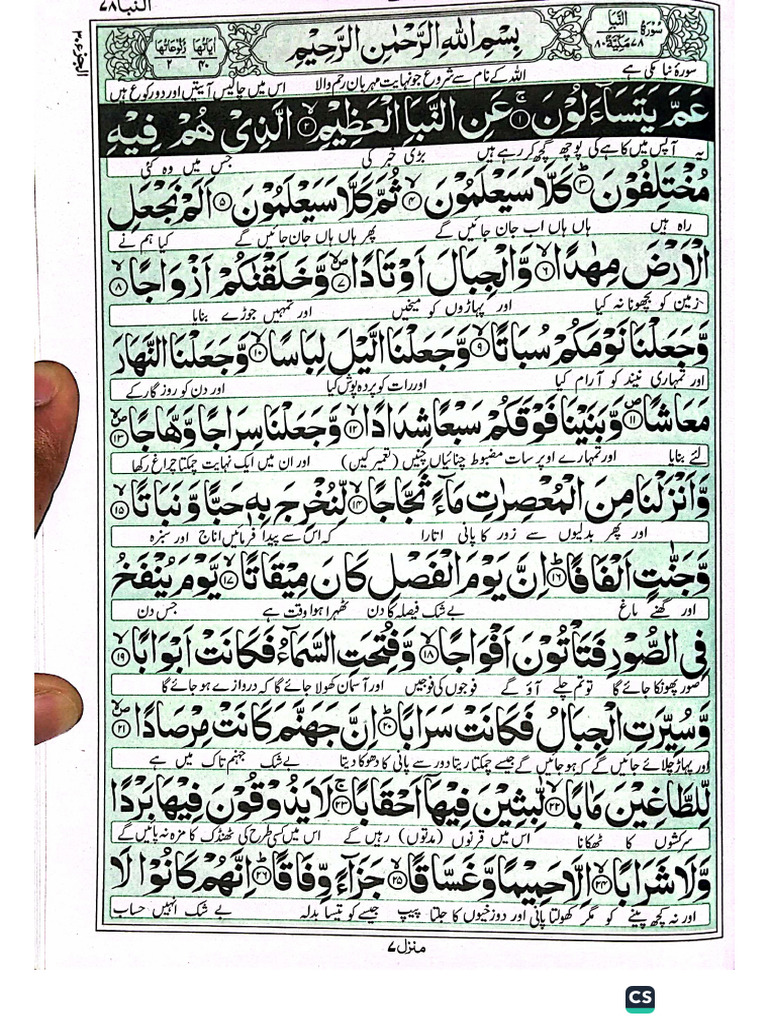 النبا ٧٨
سورة النبا ٧٨ مكية ٨٠
بِسْمِ اللهِ الرَّحْمٰنِ الرَّحِيْمِ
اٰيَاتُهَا ٤٠ رُكُوْعَاتُهَا ٢
الجزء ٣٠
سورۂ نبا مکی ہے اللہ کے نام سے شروع جو نہایت مہربان رحم والا اس میں چالیس آیتیں اور دو رکوع ہیں
عَمَّ يَتَسَآءَلُوْنَ ۚ﴿١﴾ عَنِ النَّبَاِ الْعَظِيْمِ ۙ﴿٢﴾ الَّذِىْ هُمْ فِيْهِ
یہ آپس میں کاہے کی پوچھ گچھ کر رہے ہیں بڑی خبر کی جس میں وہ کئی
مُخْتَلِفُوْنَ ؕ﴿٣﴾ كَلَّا سَيَعْلَمُوْنَ ۙ﴿٤﴾ ثُمَّ كَلَّا سَيَعْلَمُوْنَ ﴿٥﴾ اَلَمْ نَجْعَلِ
راہ ہیں ہاں ہاں اب جان جائیں گے پھر ہاں ہاں جان جائیں گے کیا ہم نے
الْاَرْضَ مِهٰدًا ۙ﴿٦﴾ وَّالْجِبَالَ اَوْتَادًا ۪ۙ﴿٧﴾ وَّخَلَقْنٰكُمْ اَزْوَاجًا ۙ﴿٨﴾
زمین کو بچھونا نہ کیا اور پہاڑوں کو میخیں اور تمہیں جوڑے بنایا
وَّجَعَلْنَا نَوْمَكُمْ سُبَاتًا ۙ﴿٩﴾ وَّجَعَلْنَا الَّيْلَ لِبَاسًا ۙ﴿١٠﴾ وَّجَعَلْنَا النَّهَارَ
اور تمہاری نیند کو آرام کیا اور رات کو پردہ پوش کیا اور دن کو روزگار کے
مَعَاشًا ۪﴿١١﴾ وَّبَنَيْنَا فَوْقَكُمْ سَبْعًا شِدَادًا ۙ﴿١٢﴾ وَّجَعَلْنَا سِرَاجًا وَّهَّاجًا ۪ۙ﴿١٣﴾
لئے بنایا اور تمہارے اوپر سات مضبوط چنائیاں چنیں (تعمیر کیں) اور ان میں ایک نہایت چمکتا چراغ رکھا
وَّاَنْزَلْنَا مِنَ الْمُعْصِرٰتِ مَآءً ثَجَّاجًا ۙ﴿١٤﴾ لِّنُخْرِجَ بِهٖ حَبًّا وَّنَبَاتًا ۙ﴿١٥﴾
اور پھر بدلیوں سے زور کا پانی اتارا کہ اس سے پیدا فرمائیں اناج اور سبزہ
وَّجَنّٰتٍ اَلْفَافًا ؕ﴿١٦﴾ اِنَّ يَوْمَ الْفَصْلِ كَانَ مِيْقَاتًا ۙ﴿١٧﴾ يَّوْمَ يُنْفَخُ
اور گھنے باغ بے شک فیصلہ کا دن ٹھہرا ہوا وقت ہے جس دن
فِى الصُّوْرِ فَتَاْتُوْنَ اَفْوَاجًا ۙ﴿١٨﴾ وَّفُتِحَتِ السَّمَآءُ فَكَانَتْ اَبْوَابًا ۙ﴿١٩﴾
صور پھونکا جائے گا تو تم چلے آؤ گے فوجوں کی فوجیں اور آسمان کھولا جائے گا کہ دروازے ہو جائے گا
وَّسُيِّرَتِ الْجِبَالُ فَكَانَتْ سَرَابًا ؕ﴿٢٠﴾ اِنَّ جَهَنَّمَ كَانَتْ مِرْصَادًا ۪ۙ﴿٢١﴾
اور پہاڑ چلائے جائیں گے کہ ہو جائیں گے جیسے چمکتا ریتا دور سے پانی کا دھوکا دیتا بے شک جہنم تاک میں ہے
لِّلطَّاغِيْنَ مَاٰبًا ۙ﴿٢٢﴾ لّٰبِثِيْنَ فِيْهَاۤ اَحْقَابًا ۚ﴿٢٣﴾ لَا يَذُوْقُوْنَ فِيْهَا بَرْدًا
سرکشوں کا ٹھکانا اس میں قرنوں (مدتوں) رہیں گے اس میں کسی طرح کی ٹھنڈک کا مزہ نہ پائیں گے
وَّلَا شَرَابًا ۙ﴿٢٤﴾ اِلَّا حَمِيْمًا وَّغَسَّاقًا ۙ﴿٢٥﴾ جَزَآءً وِّفَاقًا ؕ﴿٢٦﴾ اِنَّهُمْ كَانُوْا لَا
اور نہ کچھ پینے کو مگر کھولتا پانی اور دوزخیوں کا جلتا پیپ جیسے کو تیسا بدلہ بے شک انہیں حساب
منزل ٧
CS